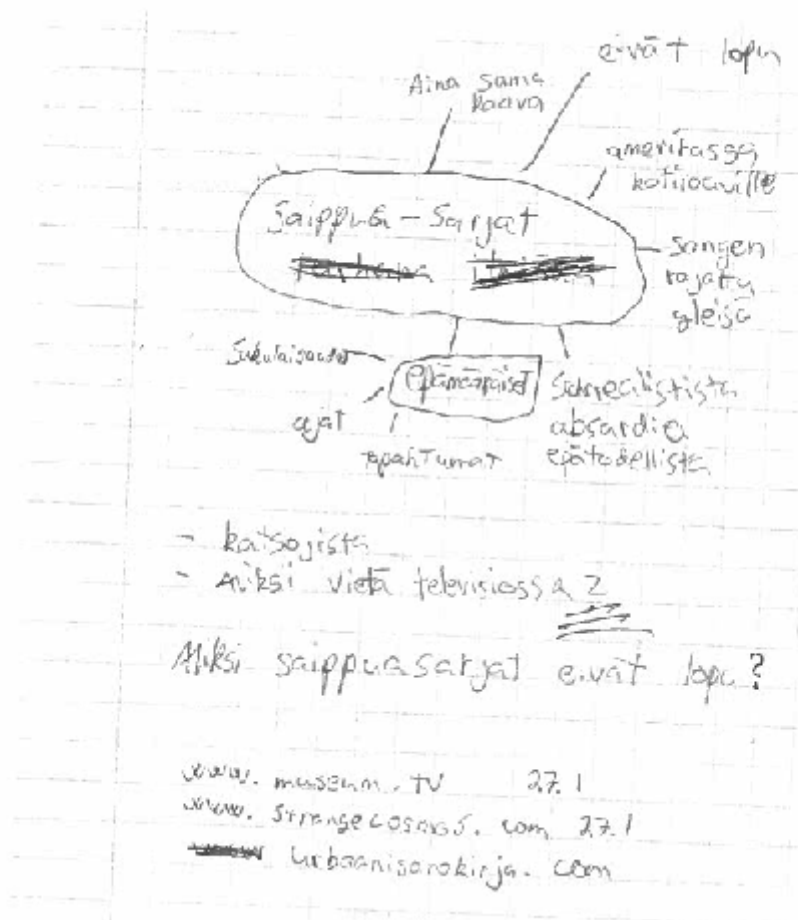 eivät lopu
Aina sama
kaava
amerikassa
kotirouville
Saippua - Sarjat
sangen
rajattu
yleisö
Sukulaisuudet
epämääräiset
ajat
tapahtumat
Surrealistista
absurdia
epätodellista
- katsojista
- miksi vielä televisiossa ?
Miksi saippuasarjat eivät lopu?
www.museum.TV 27.1
www.strangecosmos.com 27.1
urbaanisanakirja.com